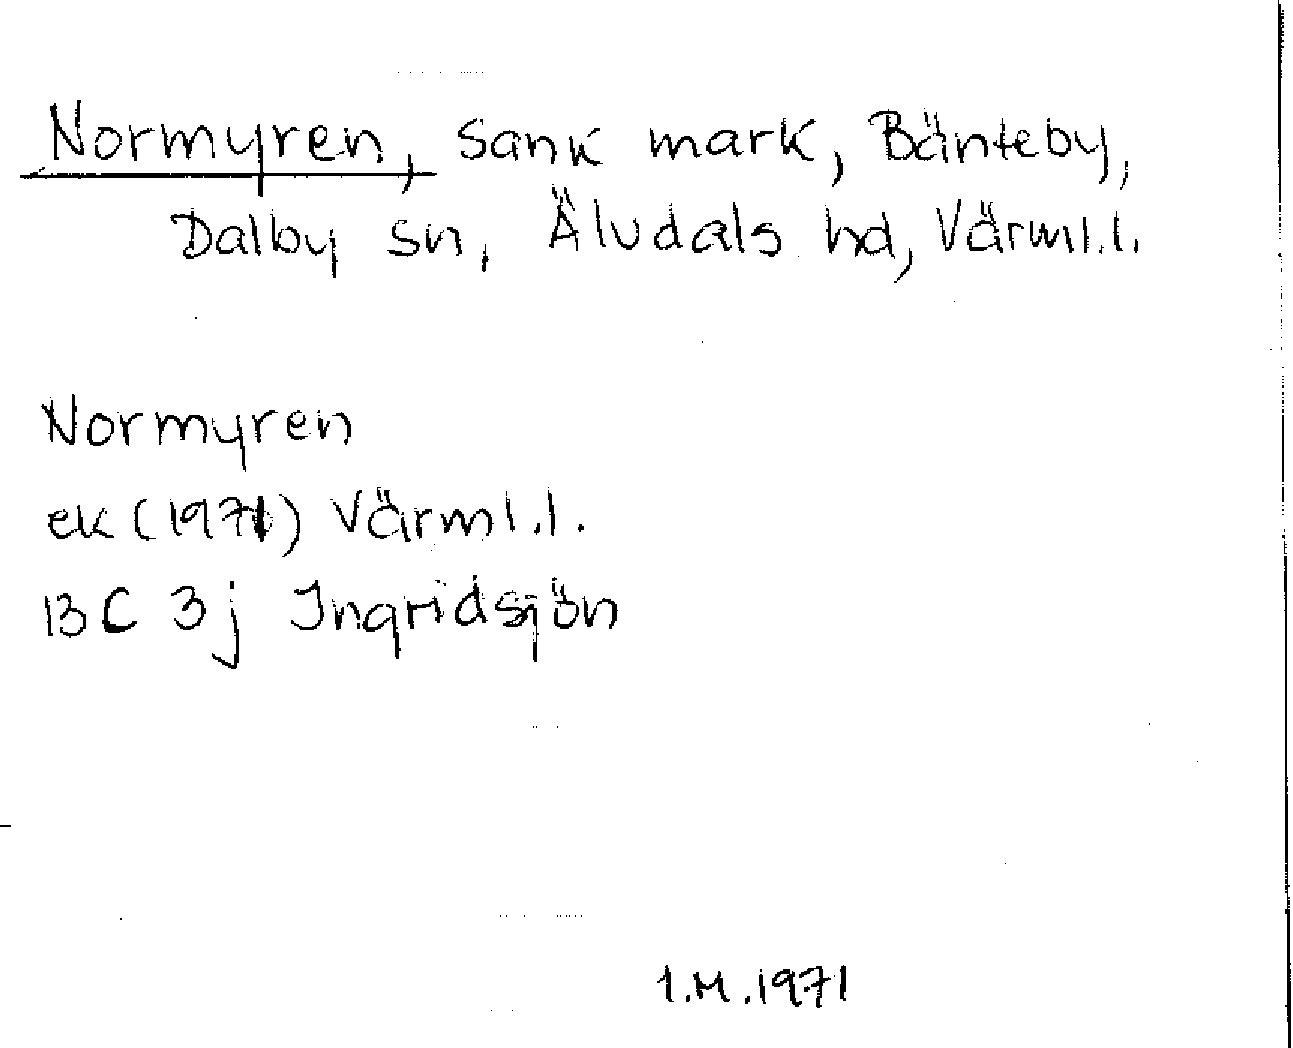 Normyren, Sank mark, Bänteby,
Dalby sn, Älvdals hd, Värml.l.
Normyren
ek (1971) Värml.l.
13C 3j Ingridsjön
1.M.1971